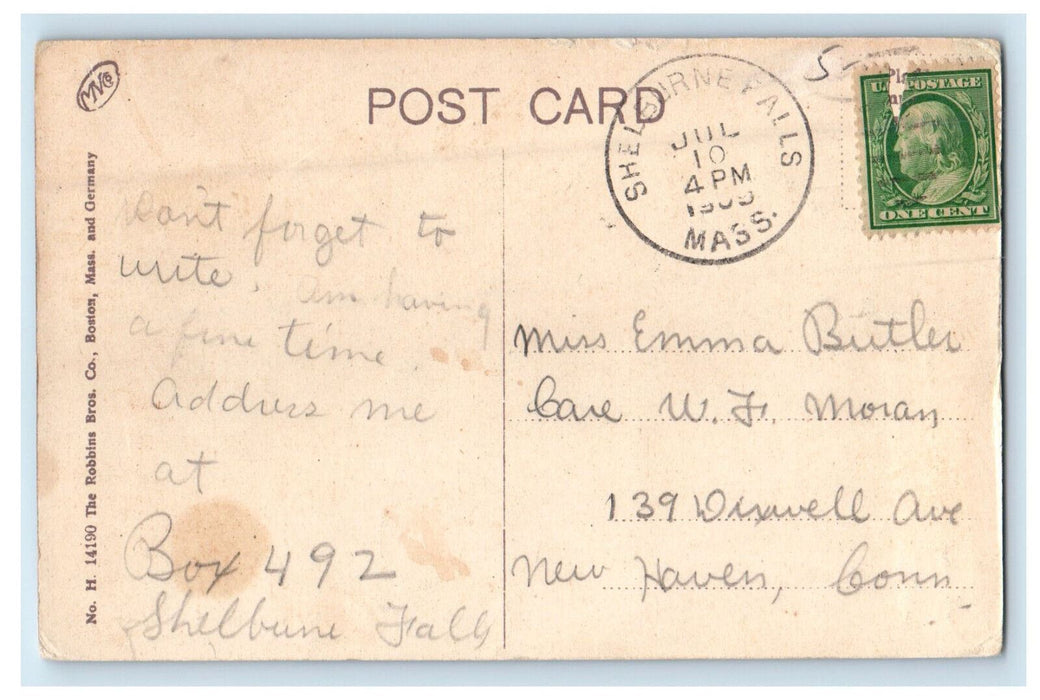 POST CARD
SHELBURNE FALLS
JUL
10
4 PM
1909
MASS.
5
U.S. POSTAGE
ONE CENT
No. H. 14190 The Robbins Bros. Co., Boston, Mass. and Germany
Don't forget to
write. am having
a fine time.
Address me
at
Box 492
Shelburne Falls
Miss Emma Butler
Care W. F. Moran
139 Dixwell Ave
New Haven, Conn